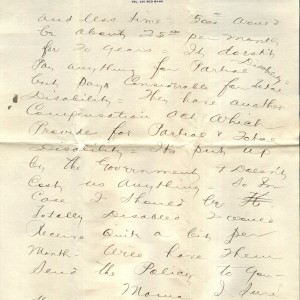 and less time - 5000 would
be about 25 00 per month
for 20 years - It doesn't
Pay anything for Partial Disability -
but Pays Considerable for Total
Disability - They have another
Compensation Act Which
Provide for Partial & Total
Disability - Its put up
by the Government & Doesn't
Cost us Anything - So In
Case I Should be
Totally Disabled I would
receive Quite a bit per
Month - Will have them
Send the Policy to You -
Mama I Sure